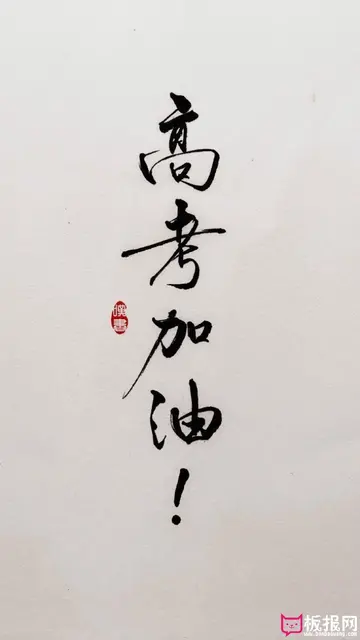 高考加油！
板报网